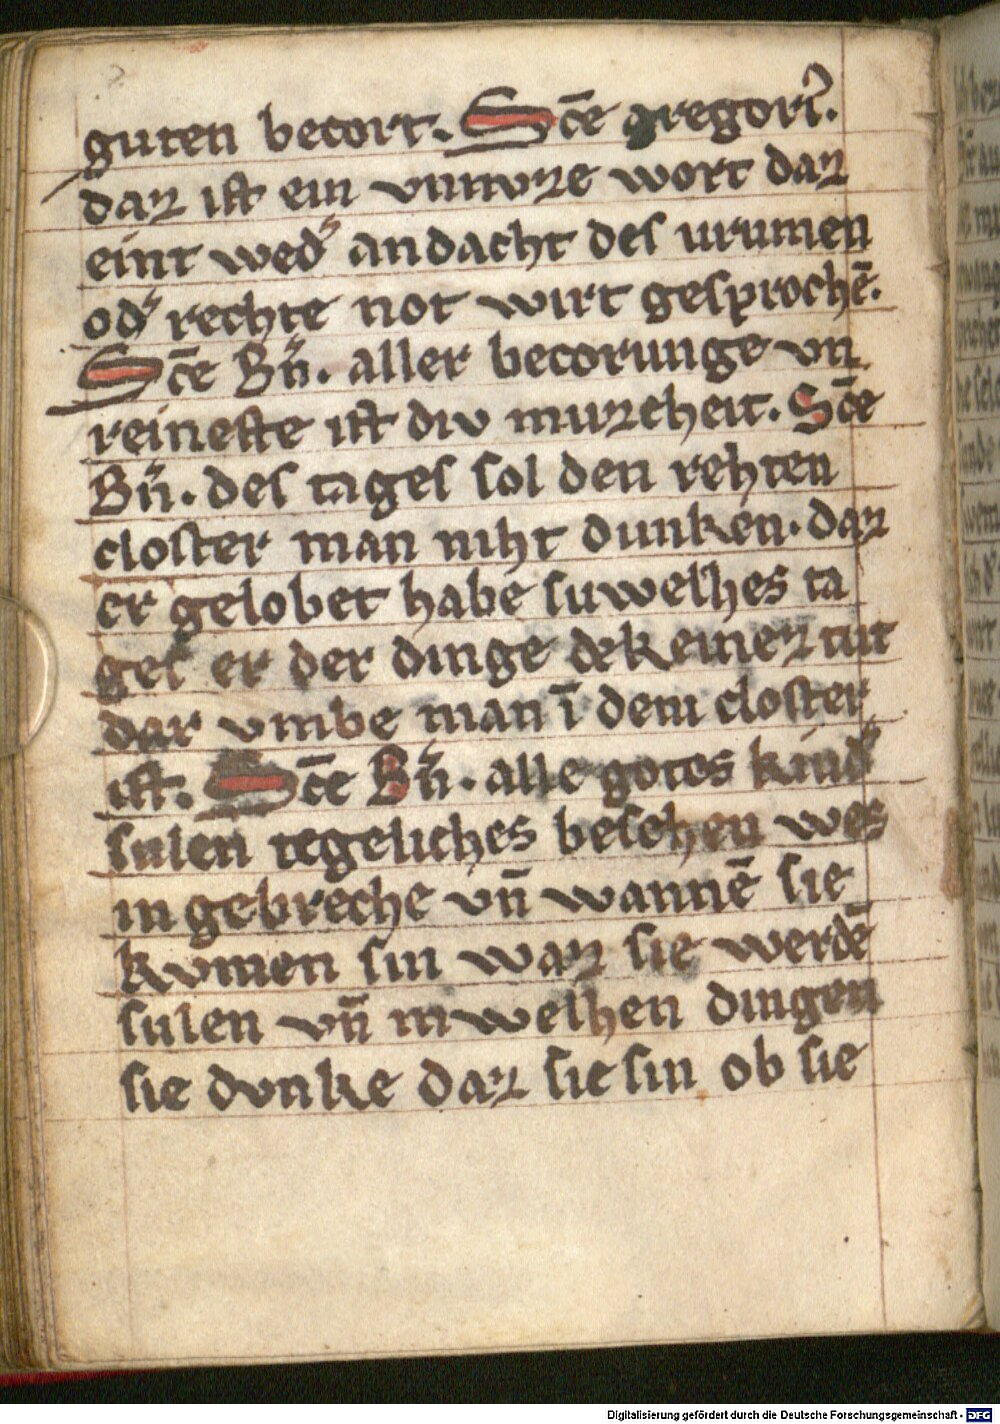 guten becort. Sc̄e gregori᷑.
daz ist ein vnnvze wort daz
eint wed᷑ andacht des urumen
od᷑ rechte not wirt gesprochē.
Sc̄e Bn̄. aller becorunge vn
reineste ist div muzcheit. Sc̄e
Bn̄. des tages sol den rehten
closter man niht dunken. daz
er gelobet habe suwelhes ta
ges er der dinge dekeinez tut
dar vmbe man ī dem closter
ist. Sc̄e Bn̄. alle gotes kind᷑
sulen tegeliches besehen wes
in gebreche vn̄ wannē sie
kvmen sin waz sie werdē
sulen vn̄ in welhen dingen
sie dvnke daz sie sin ob sie
Digitalisierung gefördert durch die Deutsche Forschungsgemeinschaft - DFG